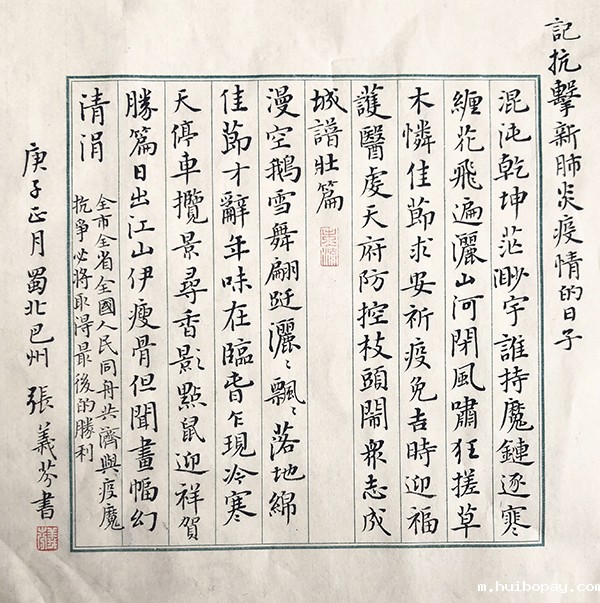 記抗擊新肺炎疫情的日子
混沌乾坤茫渺宇誰持魔鏈逐寒
纏花飛遍灑山河閉風嘯狂搓草
木憐佳節求安祈疫免吉時迎福
護醫虔天府防控枝頭鬧眾志成
城譜壯篇
漫空鵝雪舞翩跹灑灑飄飄落地綿
佳節才辭年味在臨春乍現冷寒
天停車攬景尋香影點鼠迎祥賀
勝篇日出江山伊瘦骨但聞畫幅幻
清涓
全市全省全國人民同舟共濟與疫魔
抗爭必將取得最後的勝利
庚子正月蜀北巴州張義芬書
m.huibopay.com